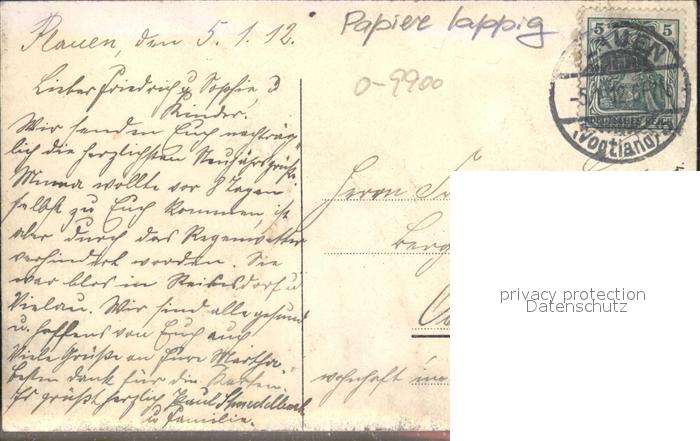 Plauen, den 5.1.12.
Papier lappig
0-9900
5 5
PLAUEN
(Vogtland)
Lieber Friedrich u. Sophie, 3
Kinder.
Wir senden Euch nachträg-
lich die herzlichsten Neujahrsgrüße
Mama wollte vor 8 Tagen
selbst zu Euch kommen, ist
aber durch das Regenwetter
verhindert worden. Sie
war blos in Reinsdorf u
Vielau. Wir sind alle gesund
u. hoffens von Euch auch
Viele Grüße an Eure Martha,
besten Dank für die Karten.
Es grüßt herzlich Paul
u. Familie.
Herrn
Berg
wohnhaft im
privacy protection
Datenschutz